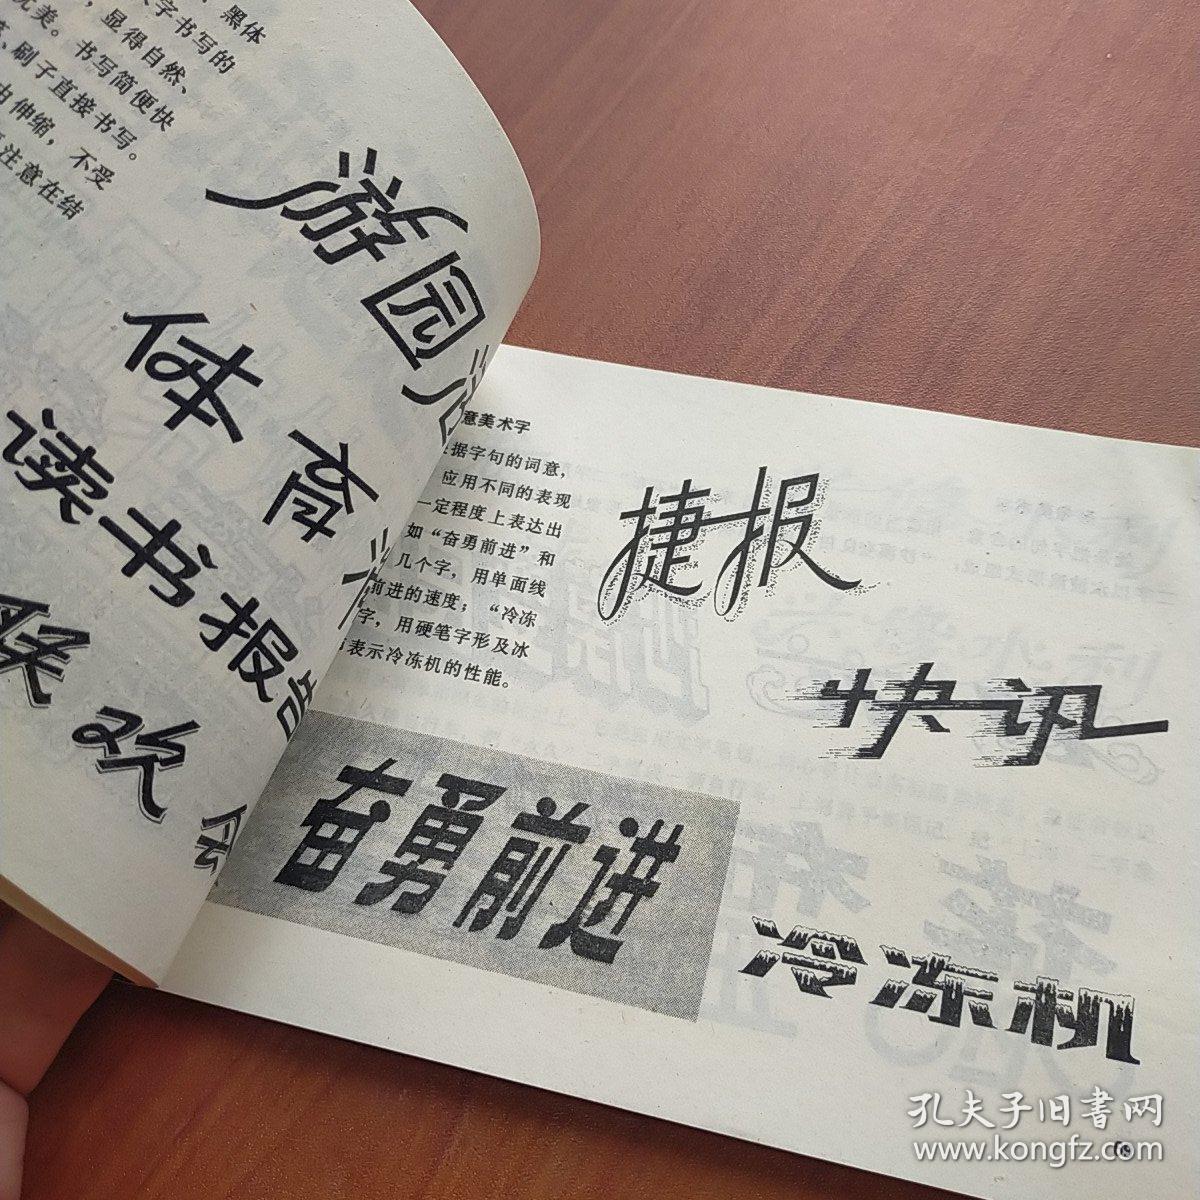 黑体
字书写的
优美。书写简便快
，显得自然、
刷子直接书写。
由伸缩，不受
注意在结
游园
体育
读书报告
联欢会
意美术字
据字句的词意，
应用不同的表现
一定程度上表达出
如“奋勇前进”和
几个字，用单面线
前进的速度；“冷冻
字，用硬笔字形及冰
表示冷冻机的性能。
捷报
快讯
奋勇前进
冷冻机
孔夫子旧书网
www.kongfz.com